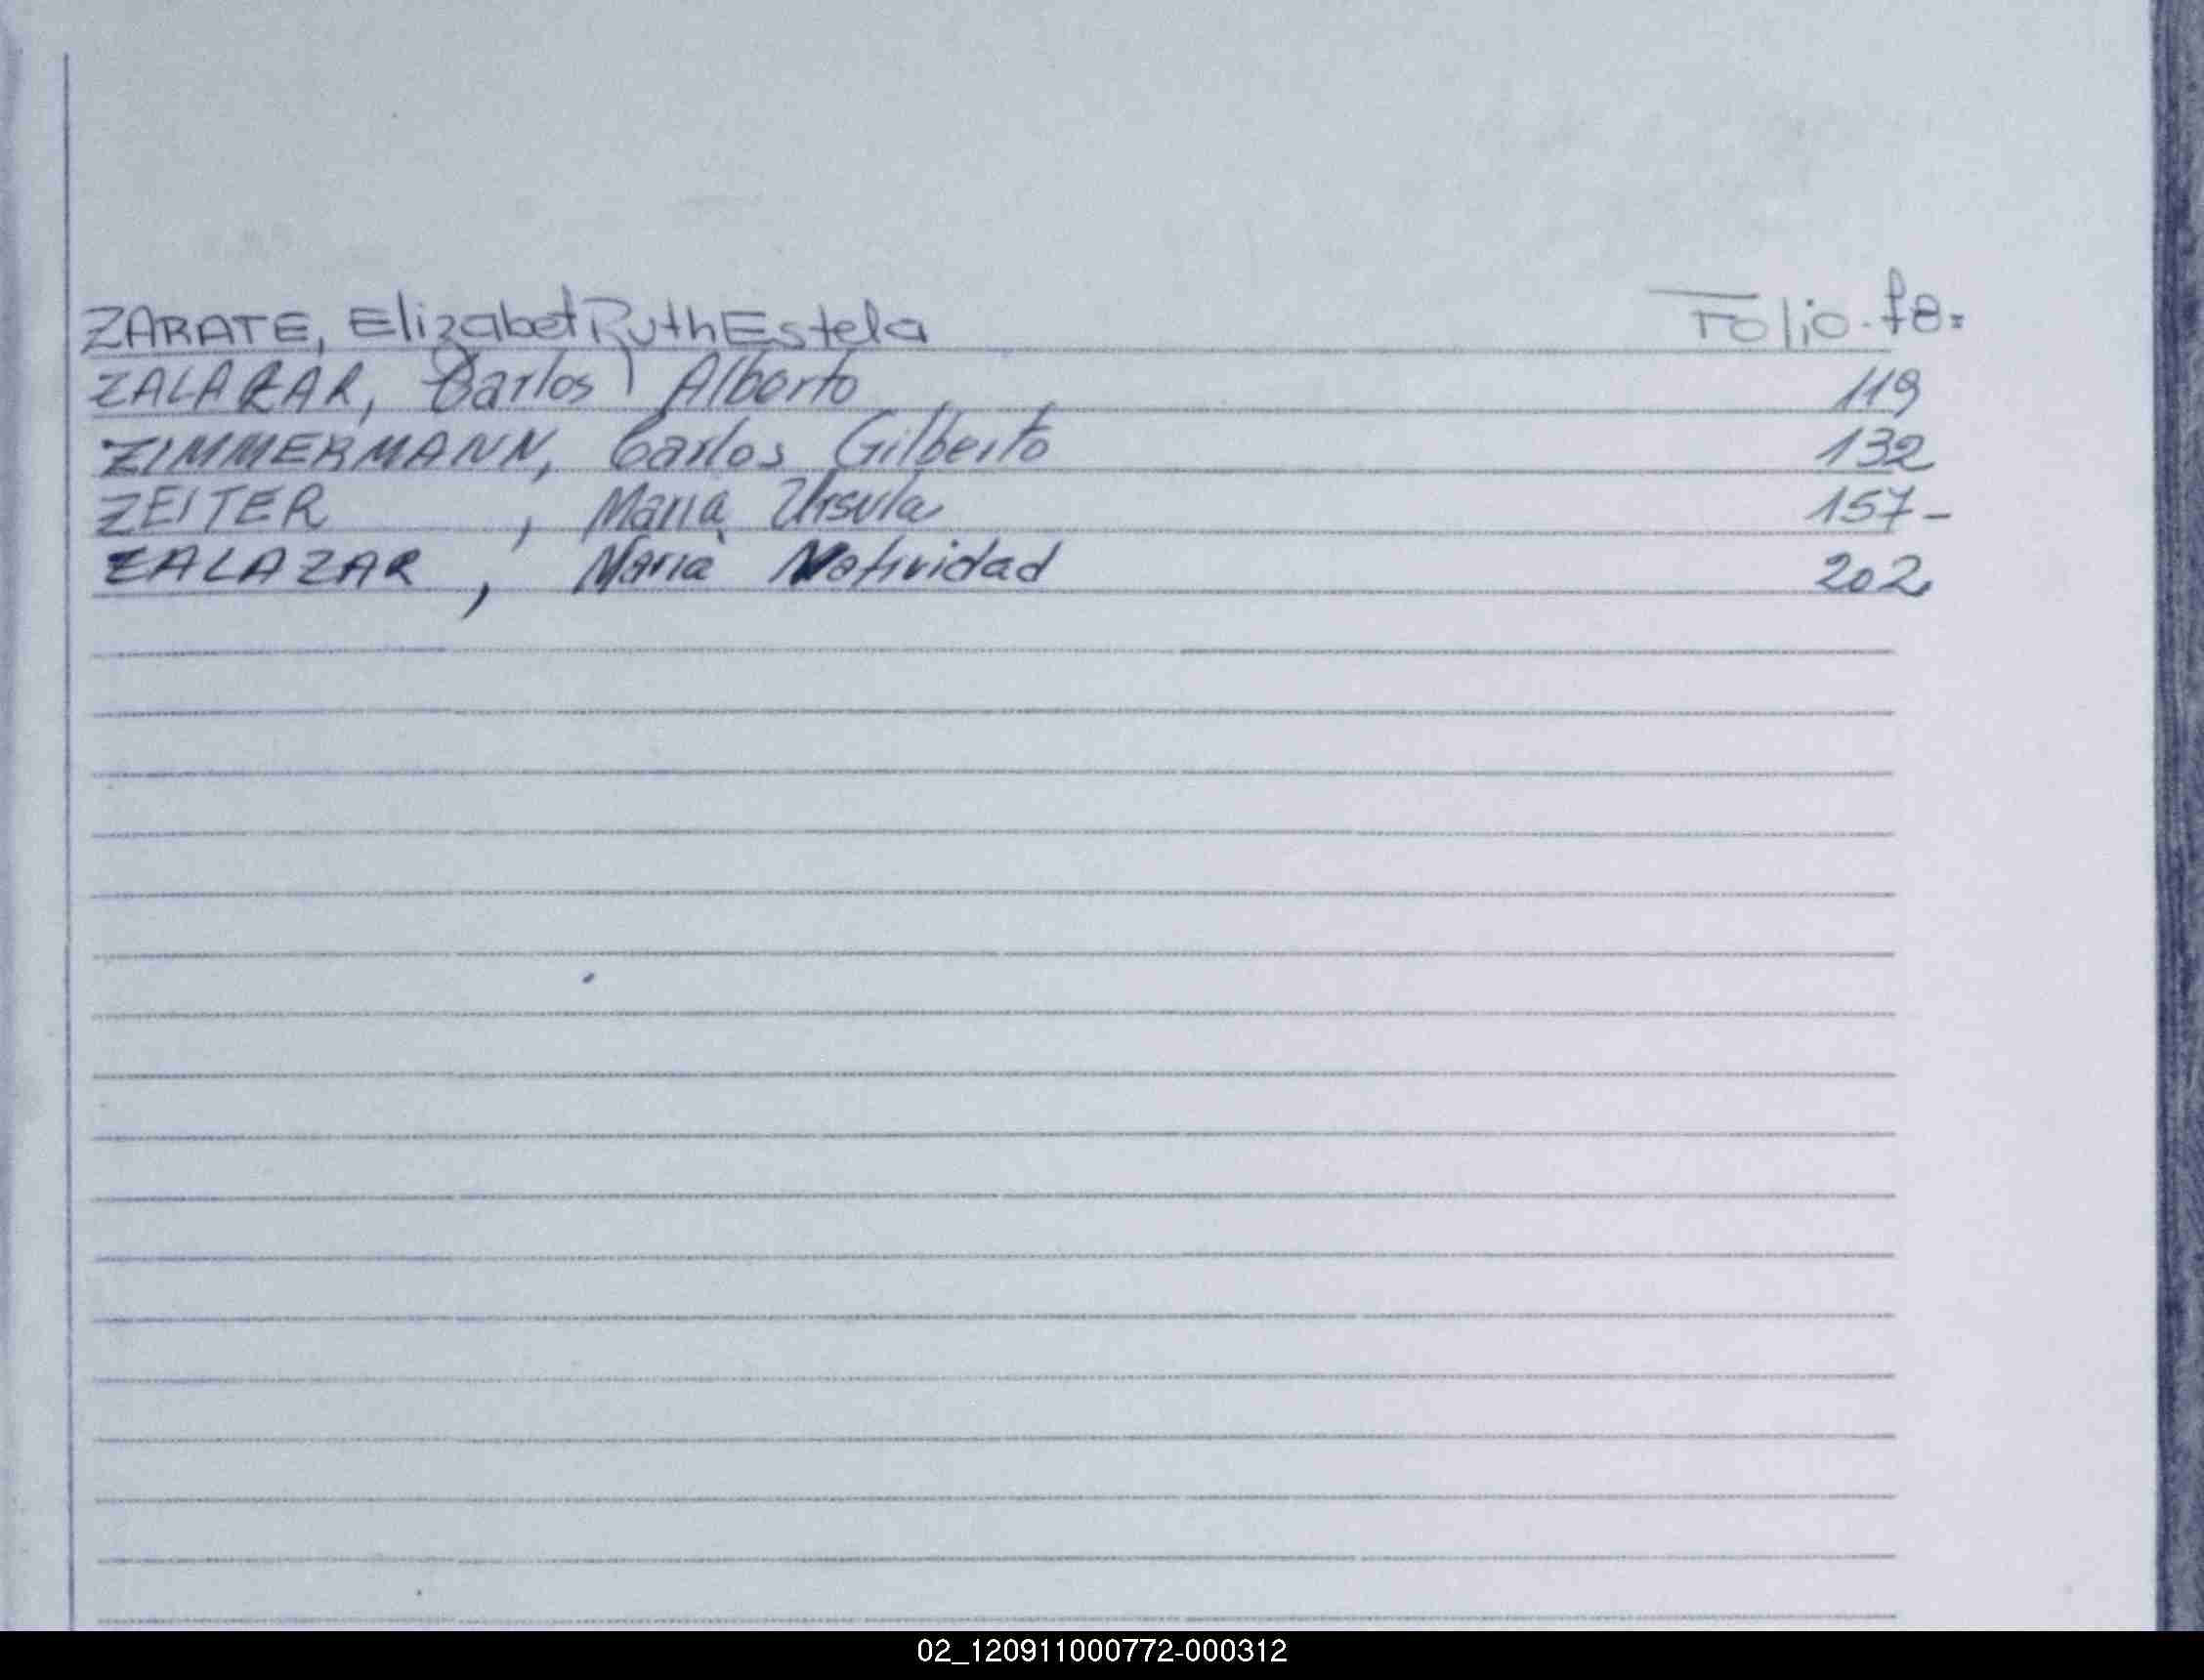 ZARATE, Elizabet Ruth Estela Folio. 78.
ZALAZAR, Carlos Alberto 119
ZIMMERMANN, Carlos Gilberto 132
ZEITER , Maria Ursula 157-
ZALAZAR , Maria Natividad 202
02_120911000772-000312